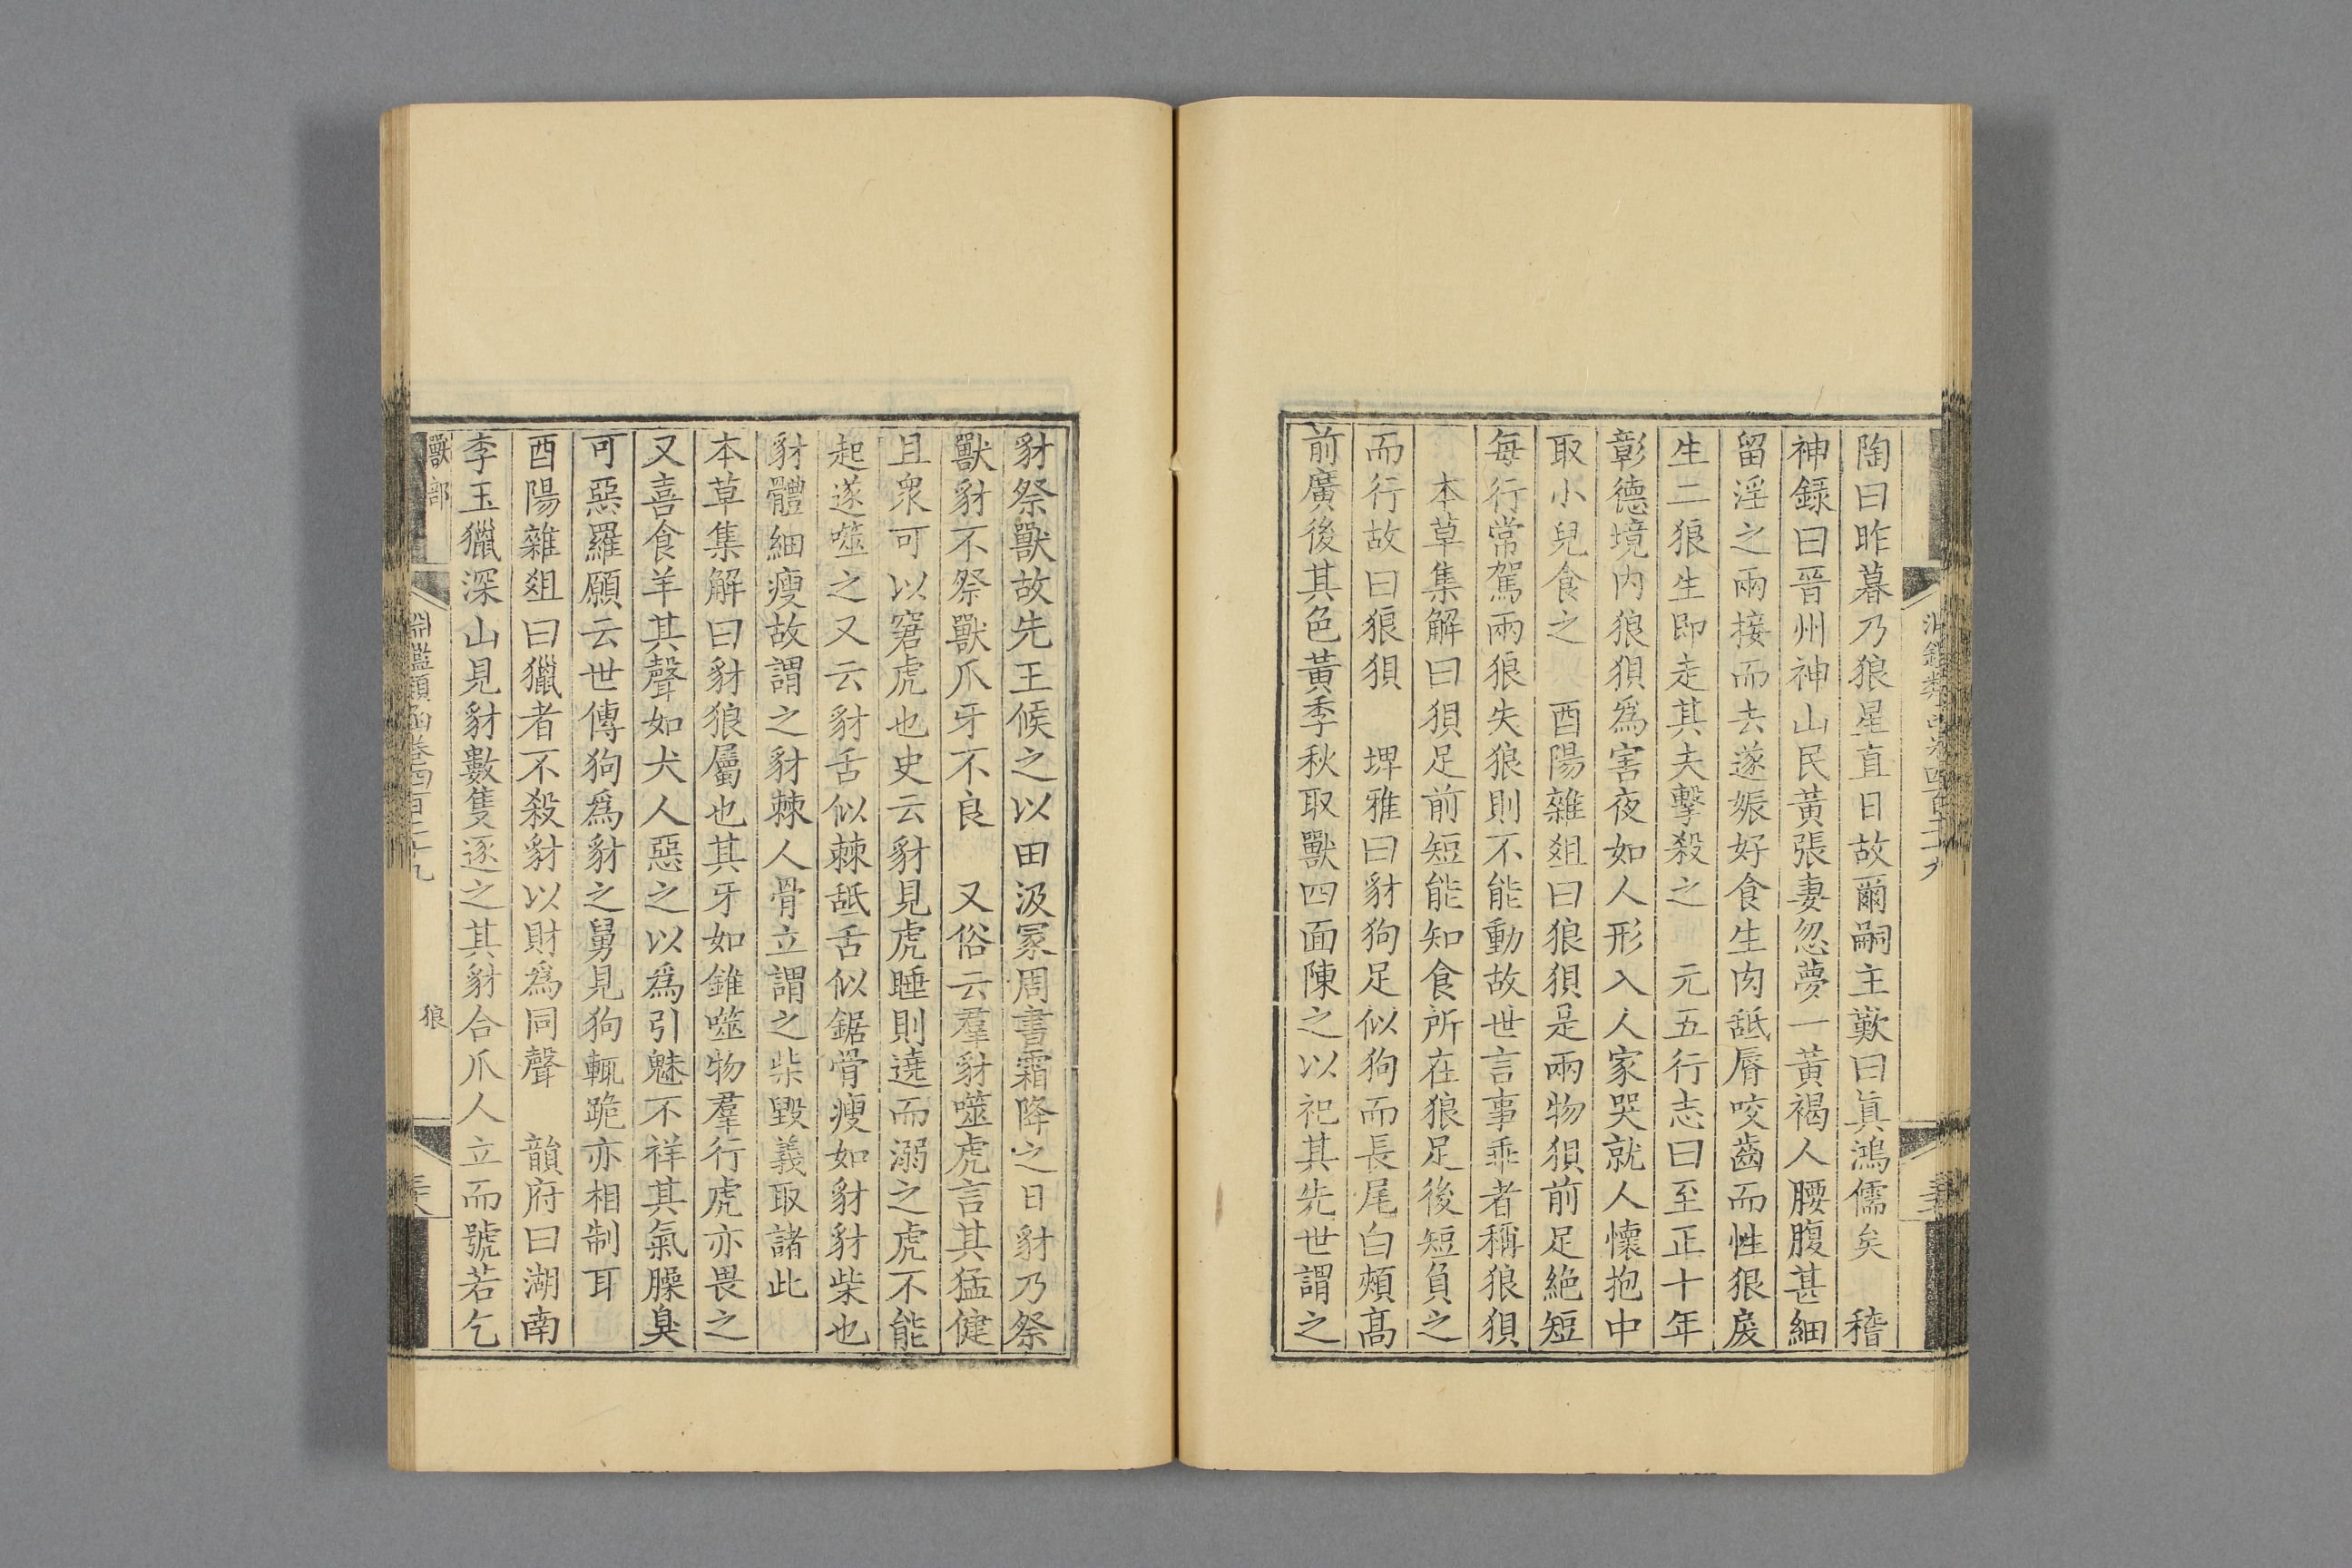 陶曰昨暮乃狼星直日故爾嗣主歎曰眞鴻儒矣　稽
神録曰晉州神山民黃張妻忽夢一黃褐人腰腹甚細
留淫之兩接而去遂娠好食生肉舐脣咬齒而性狠戾
生二狼生即走其夫擊殺之　元五行志曰至正十年
彰德境内狼狽爲害夜如人形入人家哭就人懷抱中
取小兒食之　酉陽雜俎曰狼狽是兩物狽前足絶短
每行常駕兩狼失狼則不能動故世言事乖者稱狼狽
本草集解曰狽足前短能知食所在狼足後短負之
而行故曰狼狽　埤雅曰豺狗足似狗而長尾白頰高
前廣後其色黃季秋取獸四面陳之以祀其先世謂之
豺祭獸故先王候之以田汲冢周書霜降之日豺乃祭
獸豺不祭獸爪牙不良　又俗云羣豺噬虎言其猛健
且衆可以窘虎也史云豺見虎睡則遶而溺之虎不能
起遂噬之又云豺舌似棘舐舌似鋸骨瘦如豺豺柴也
豺體細瘦故謂之豺棘人骨立謂之柴毀義取諸此
本草集解曰豺狼屬也其牙如錐噬物羣行虎亦畏之
又喜食羊其聲如犬人惡之以爲引魅不祥其氣臊臭
可惡羅願云世傳狗爲豺之舅見狗輒跪亦相制耳
酉陽雜俎曰獵者不殺豺以財爲同聲　韻府曰湖南
李玉獵深山見豺數隻逐之其豺合爪人立而號若乞
獸部
淵鑑類函卷四百二十九
狼